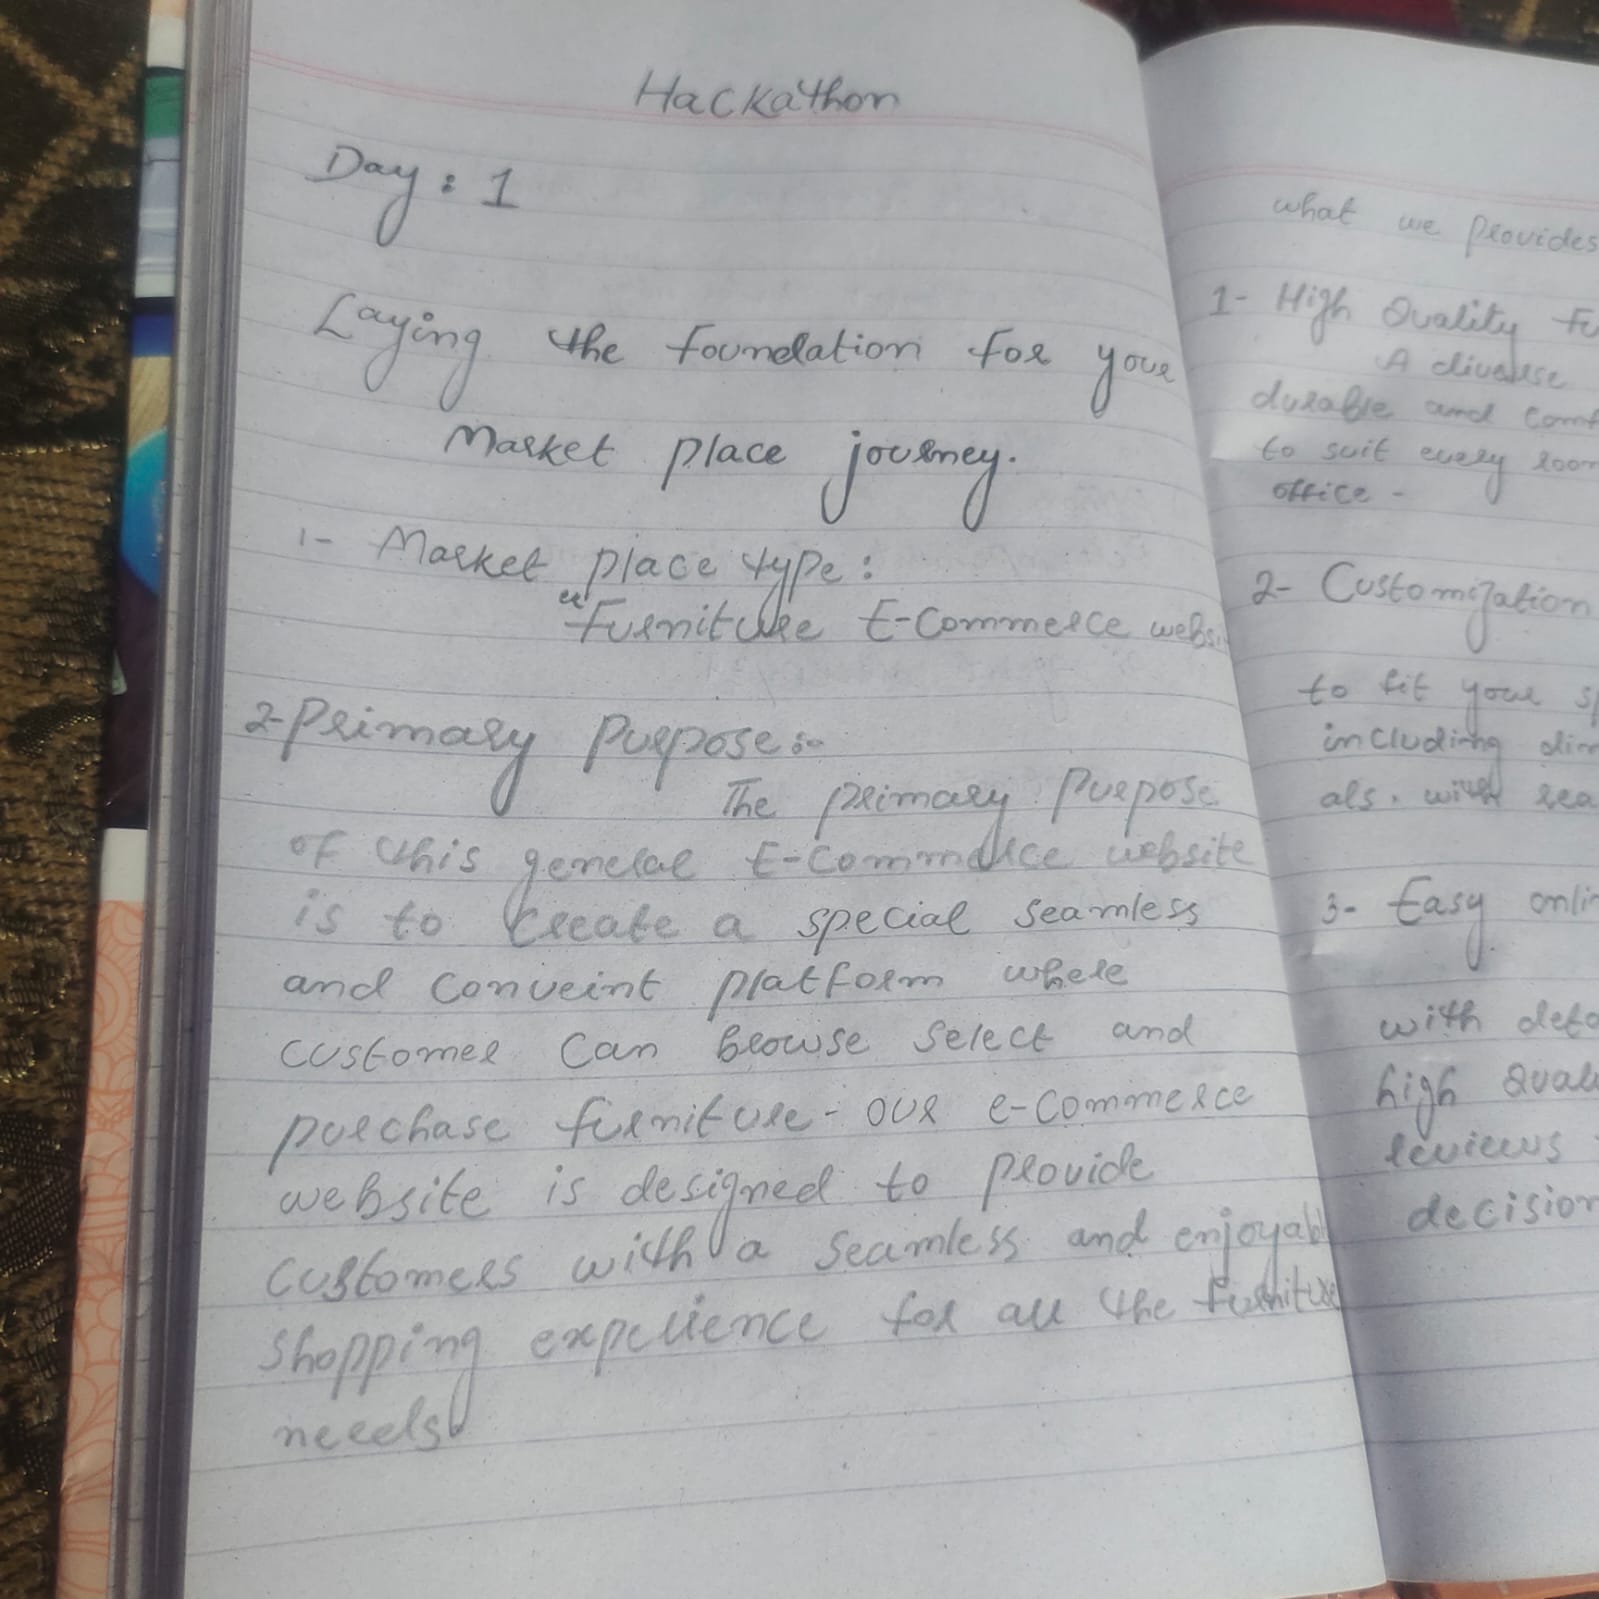 Hackathon
Day : 1
Laying the foundation for your
Market place journey.
1- Market place type :
"Furniture E-Commerce
2- Primary Purpose :-
The primary Purpose
of this general E-Commerce website
is to create a special seamless
and conveint platform where
customer can browse select and
purchase furniture - our e-commerce
website is designed to provide
customers with a seamless and
shopping experience for all the furniture
needs
what we provides
1- High Quality
A diverse
durable and
to suit every
office -
2- Customization
to fit your
including
als. with
3- Easy
with
high
reviews